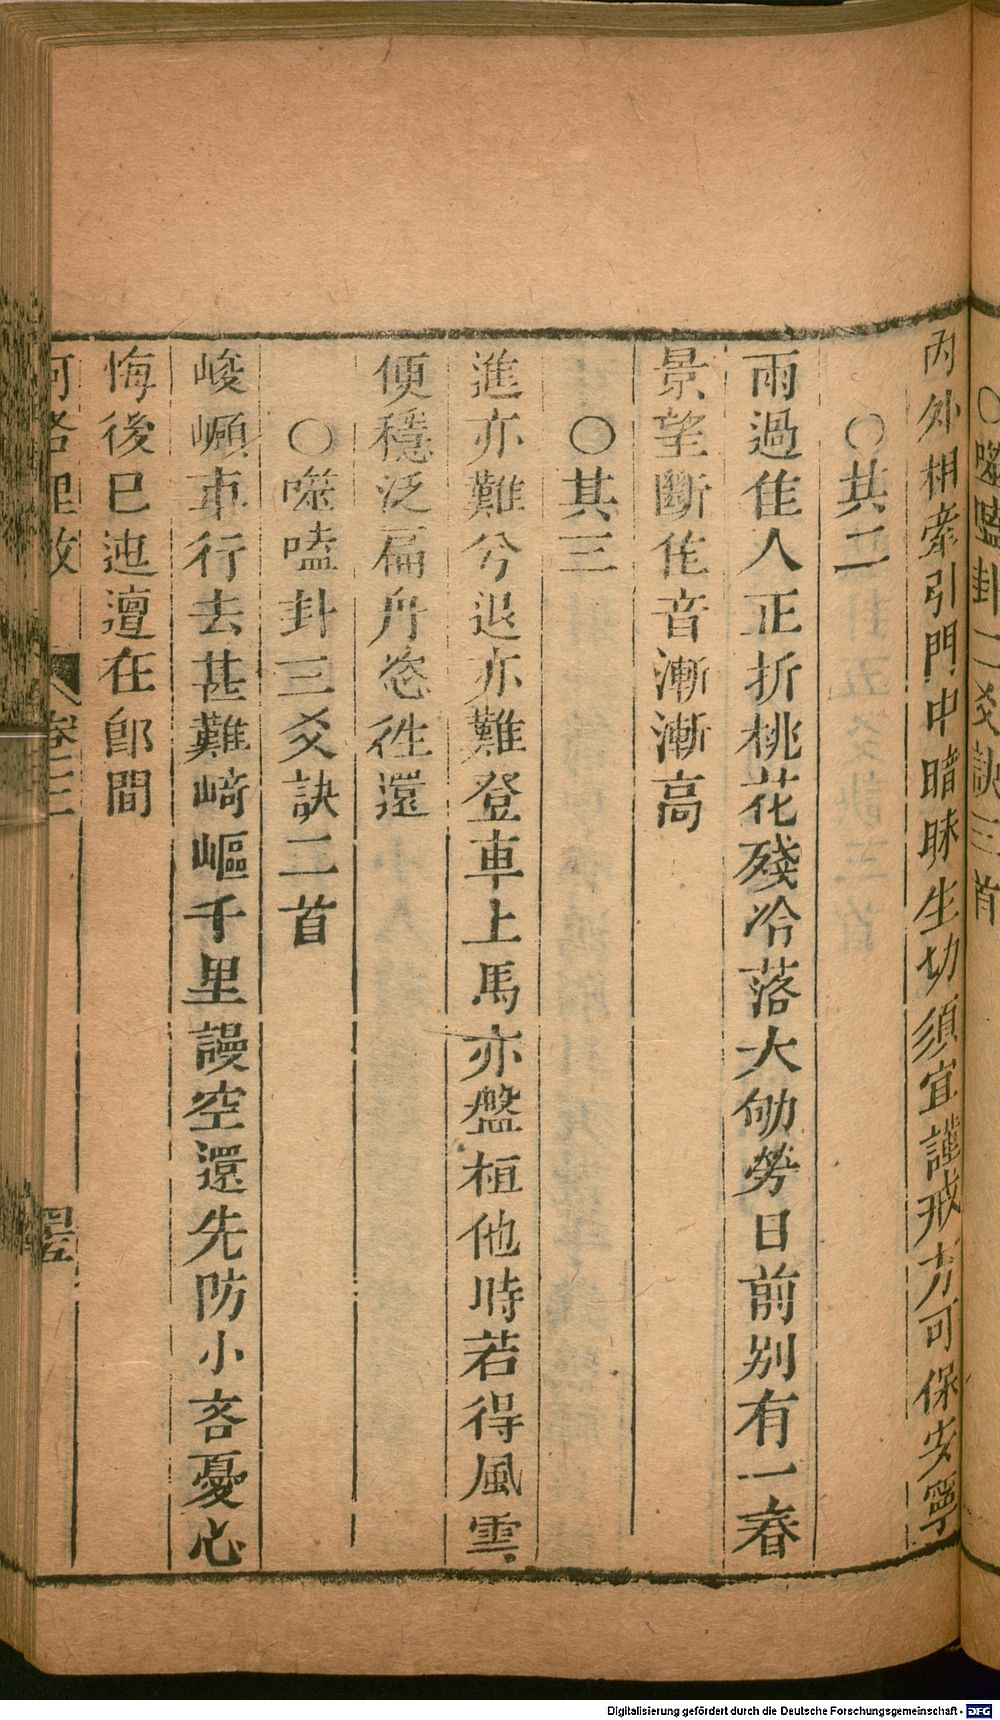 ○噬嗑卦二爻訣三首
內外相牽引門中暗昧生切須宜謹戒方可保安寧
○其二
雨過隹人正折桃花殘冷落大劬勞日前別有一春
景望斷隹音漸漸高
○其三
進亦難兮退亦難登車上馬亦盤桓他時若得風雲
便穩泛扁舟恣徃還
○噬嗑卦三爻訣二首
峻嶺車行去甚難﨑嶇千里謾空還先防小吝憂心
悔後已迍邅在郎間
河洛理數 卷三 四五
Digitalisierung gefördert durch die Deutsche Forschungsgemeinschaft - DFG